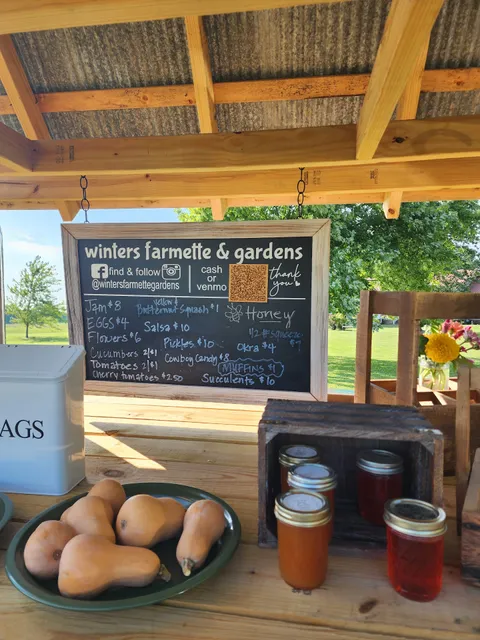 winters farmette & gardens
find & follow
@wintersfarmettegardens
cash or venmo
thank you
Jam $8
EGGS $4
Flowers $6
Cucumbers 2/$1
Tomatoes 2/$1
Cherry tomatoes $2.50
yellow &
Butternut Squash $1
Salsa $10
Pickles $10
Cowboy Candy $8
Honey
Okra $4
MUFFINS $1
Succulents $10
AGS